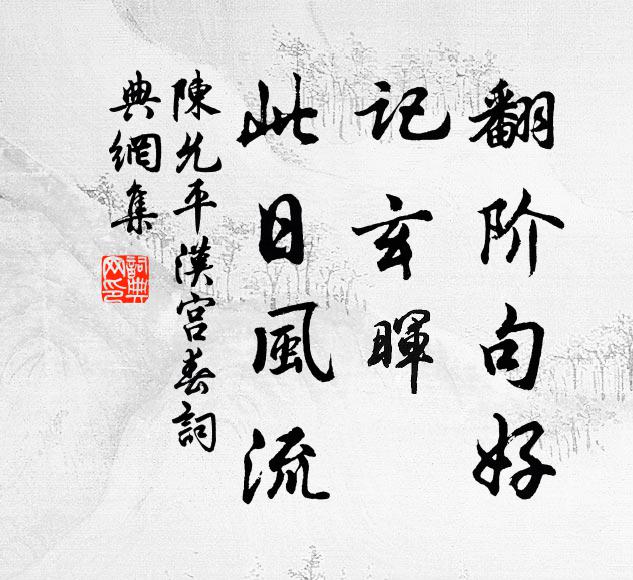 翻阶句好
記玄暉
此日風流
陳允平漢宮春詞
典網集
詞典网印